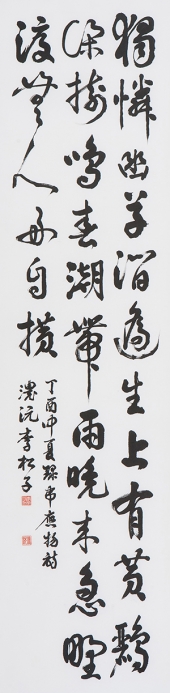 獨憐幽草澗邊生上有黃鸝
深樹鳴春潮帶雨晚來急野
渡無人舟自橫
丁酉中夏錄韋應物詩
李松子